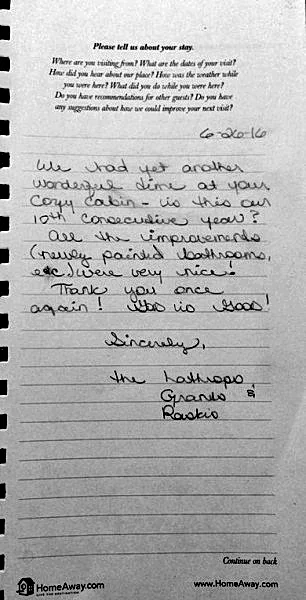 Please tell us about your stay.
Where are you visiting from? What are the dates of your visit?
How did you hear about our place? How was the weather while
you were here? What did you do while you were here?
Do you have recommendations for other guests? Do you have
any suggestions about how we could improve your next visit?
6-26-16
We had yet another
wonderful time at your
cozy cabin - is this our
10th consecutive year?
All the improvements
(newly painted bathrooms,
etc.) were very nice!
Thank you once
again! God is Good!
Sincerely,
The Lathrops,
&
Continue on back
HomeAway.com
www.HomeAway.com